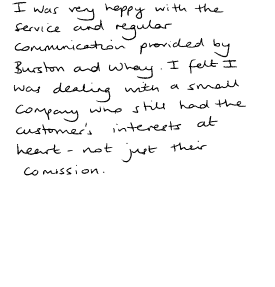 I was very happy with the
service and regular
communication provided by
Burston and Whay. I felt I
was dealing with a small
company who still had the
customer's interests at
heart - not just their
comission.